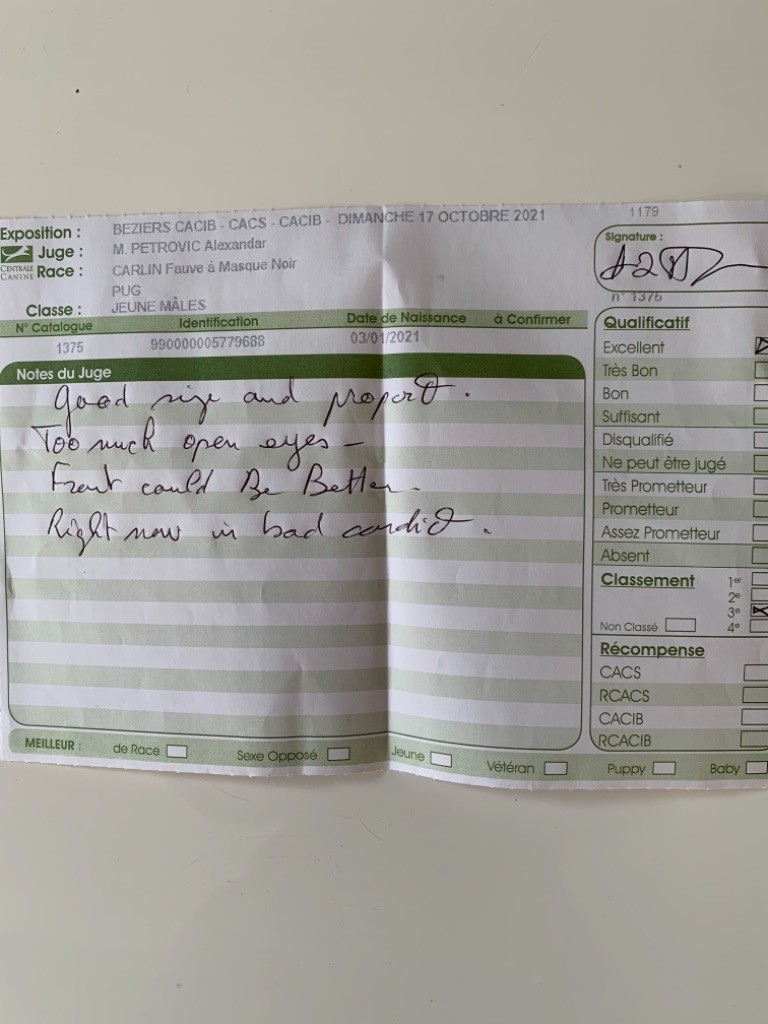 Exposition : BEZIERS CACIB - CACS - CACIB - DIMANCHE 17 OCTOBRE 2021
1179
CENTRALE CANINE
Juge : M. PETROVIC Alexandar
Race : CARLIN Fauve à Masque Noir
PUG
Classe : JEUNE MÂLES
Signature :
n° 1375
N° Catalogue Identification Date de Naissance à Confirmer
1375 990000005779688 03/01/2021
Notes du Juge
Good size and proport.
Too much open eyes -
Front could Be Better.
Right now in bad condit.
Qualificatif
Excellent
Très Bon
Bon
Suffisant
Disqualifié
Ne peut être jugé
Très Prometteur
Prometteur
Assez Prometteur
Absent
Classement 1er
2e
3e
Non Classé 4e
Récompense
CACS
RCACS
CACIB
RCACIB
MEILLEUR : de Race Sexe Opposé Jeune Vétéran Puppy Baby